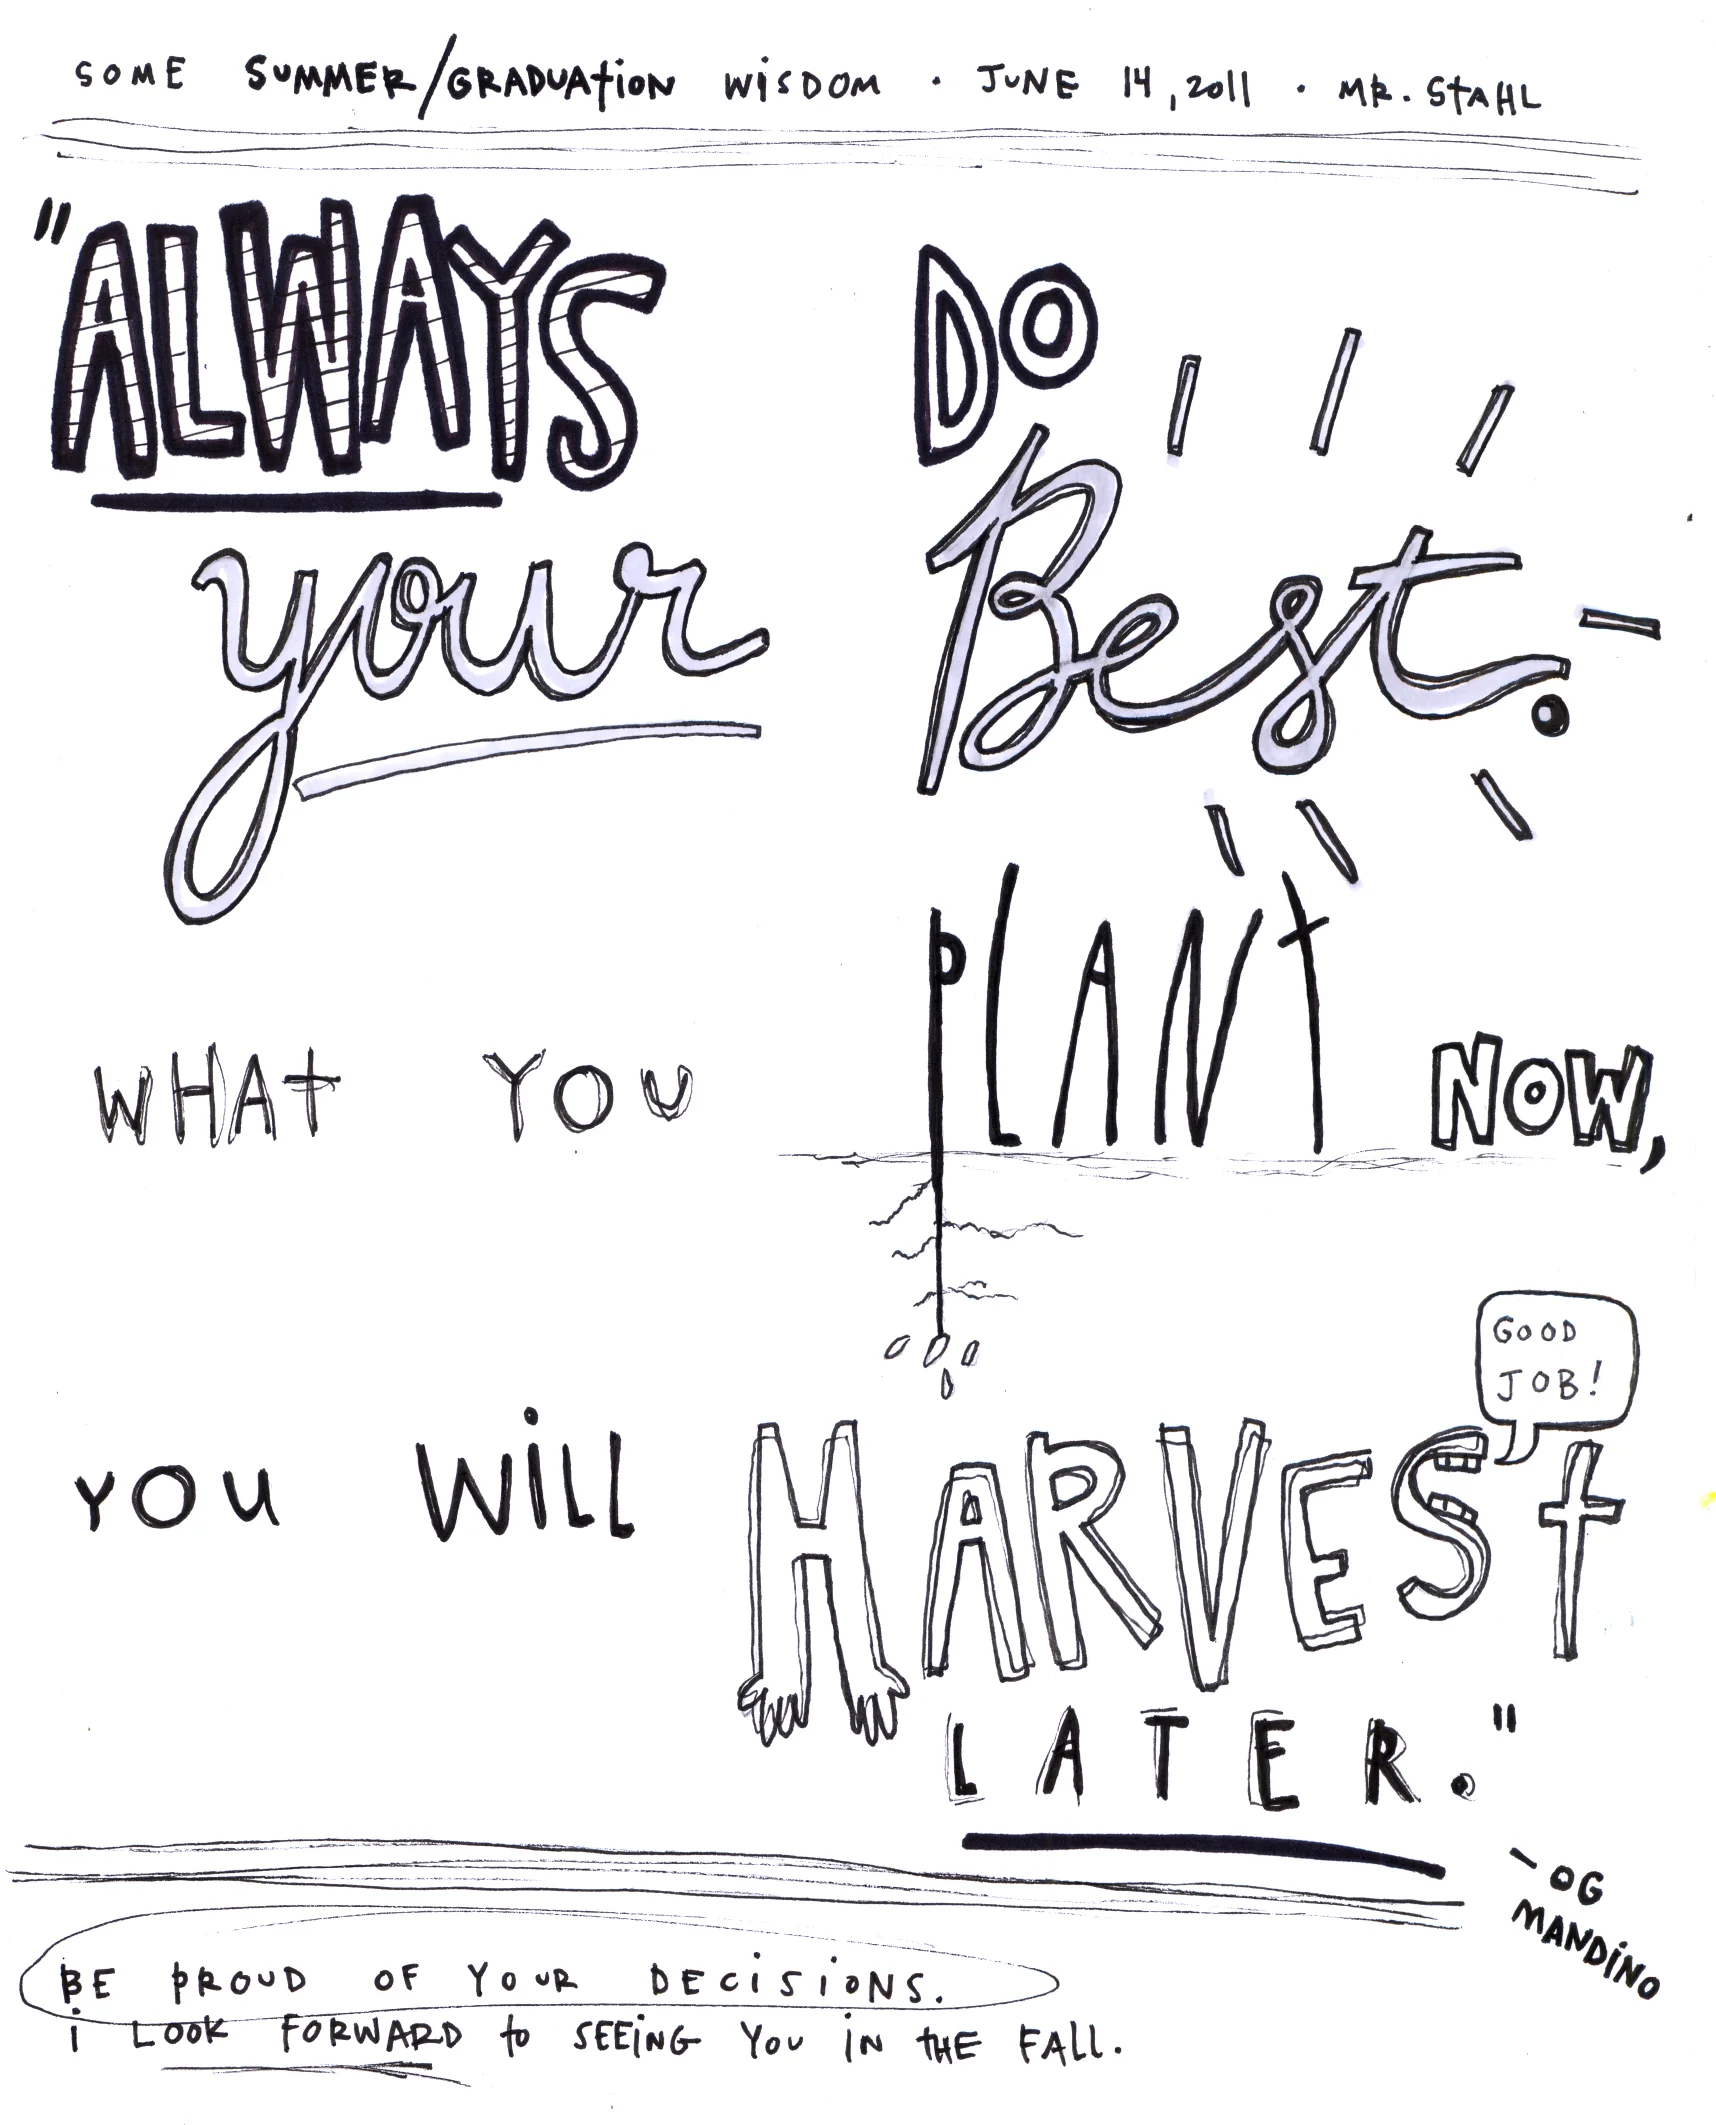 SOME SUMMER/GRADUATION WISDOM · JUNE 14, 2011 · MR. STAHL
"ALWAYS DO
your Best.
WHAT YOU PLANT NOW,
GOOD
JOB!
YOU WILL HARVEST
LATER."
- OG
MANDINO
BE PROUD OF YOUR DECISIONS.
i LOOK FORWARD to SEEING YOU IN THE FALL.